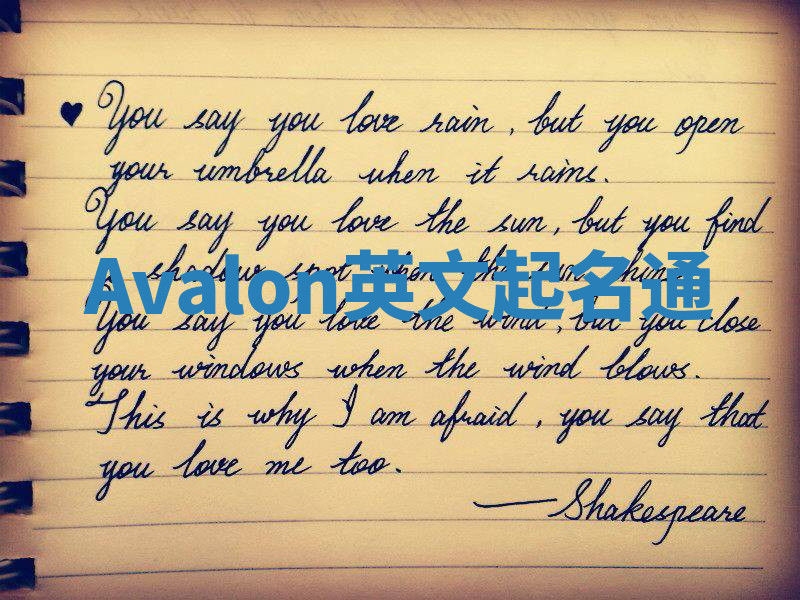 ♥ You say you love rain, but you open
your umbrella when it rains.
You say you love the sun, but you find
shadow spot when the sun
Avalon英文起名通
You say you love the wind, but you close
your windows when the wind blows.
This is why I am afraid, you say that
you love me too.
— Shakespeare